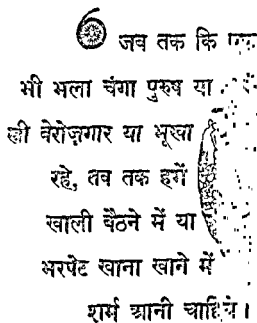 जब तक कि एक
भी भला चंगा पुरुष या
स्त्री बेरोज़गार या भूखा
रहे, तब तक हमें
खाली बैठने में या
भरपेट खाना खाने में
शर्म आनी चाहिये।